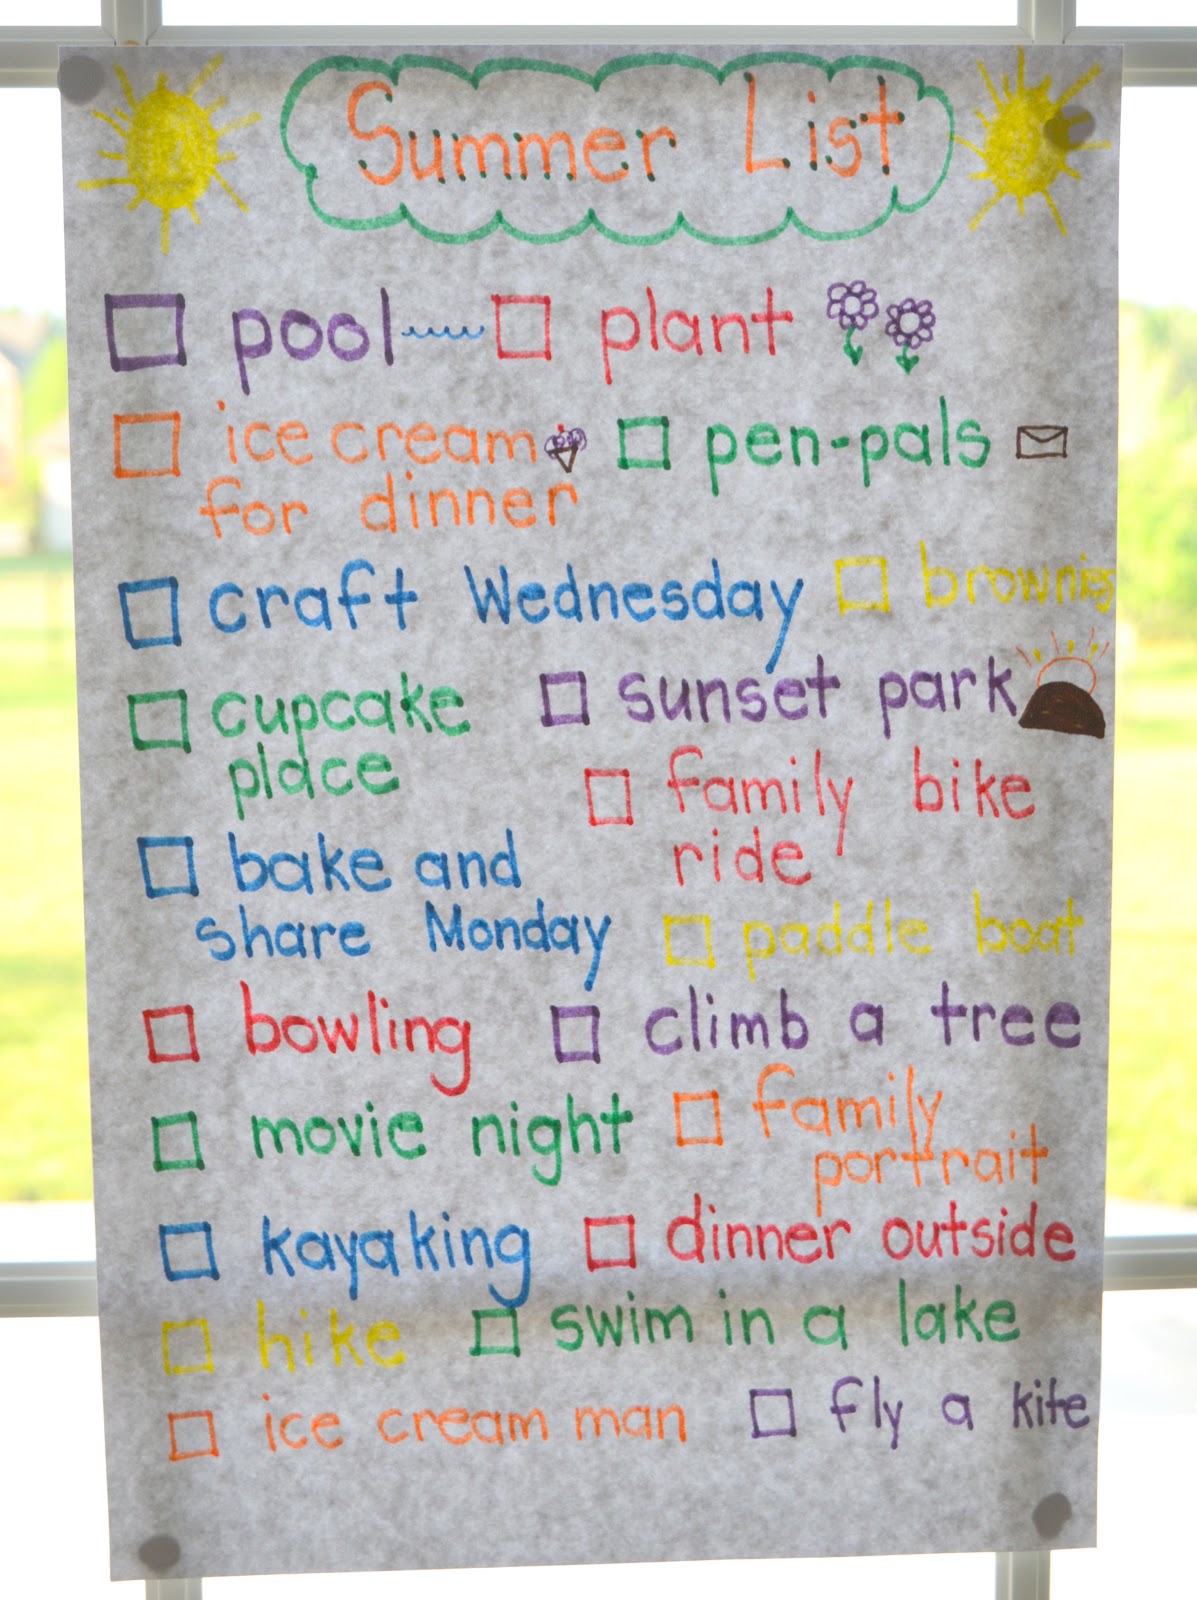 Summer List
☐ pool ☐ plant
☐ ice cream ☐ pen-pals
for dinner
☐ craft Wednesday ☐ brownies
☐ cupcake ☐ sunset park
place
☐ family bike
ride
☐ bake and
share Monday ☐ paddle boat
☐ bowling ☐ climb a tree
☐ movie night ☐ family
portrait
☐ kayaking ☐ dinner outside
☐ hike ☐ swim in a lake
☐ ice cream man ☐ fly a kite